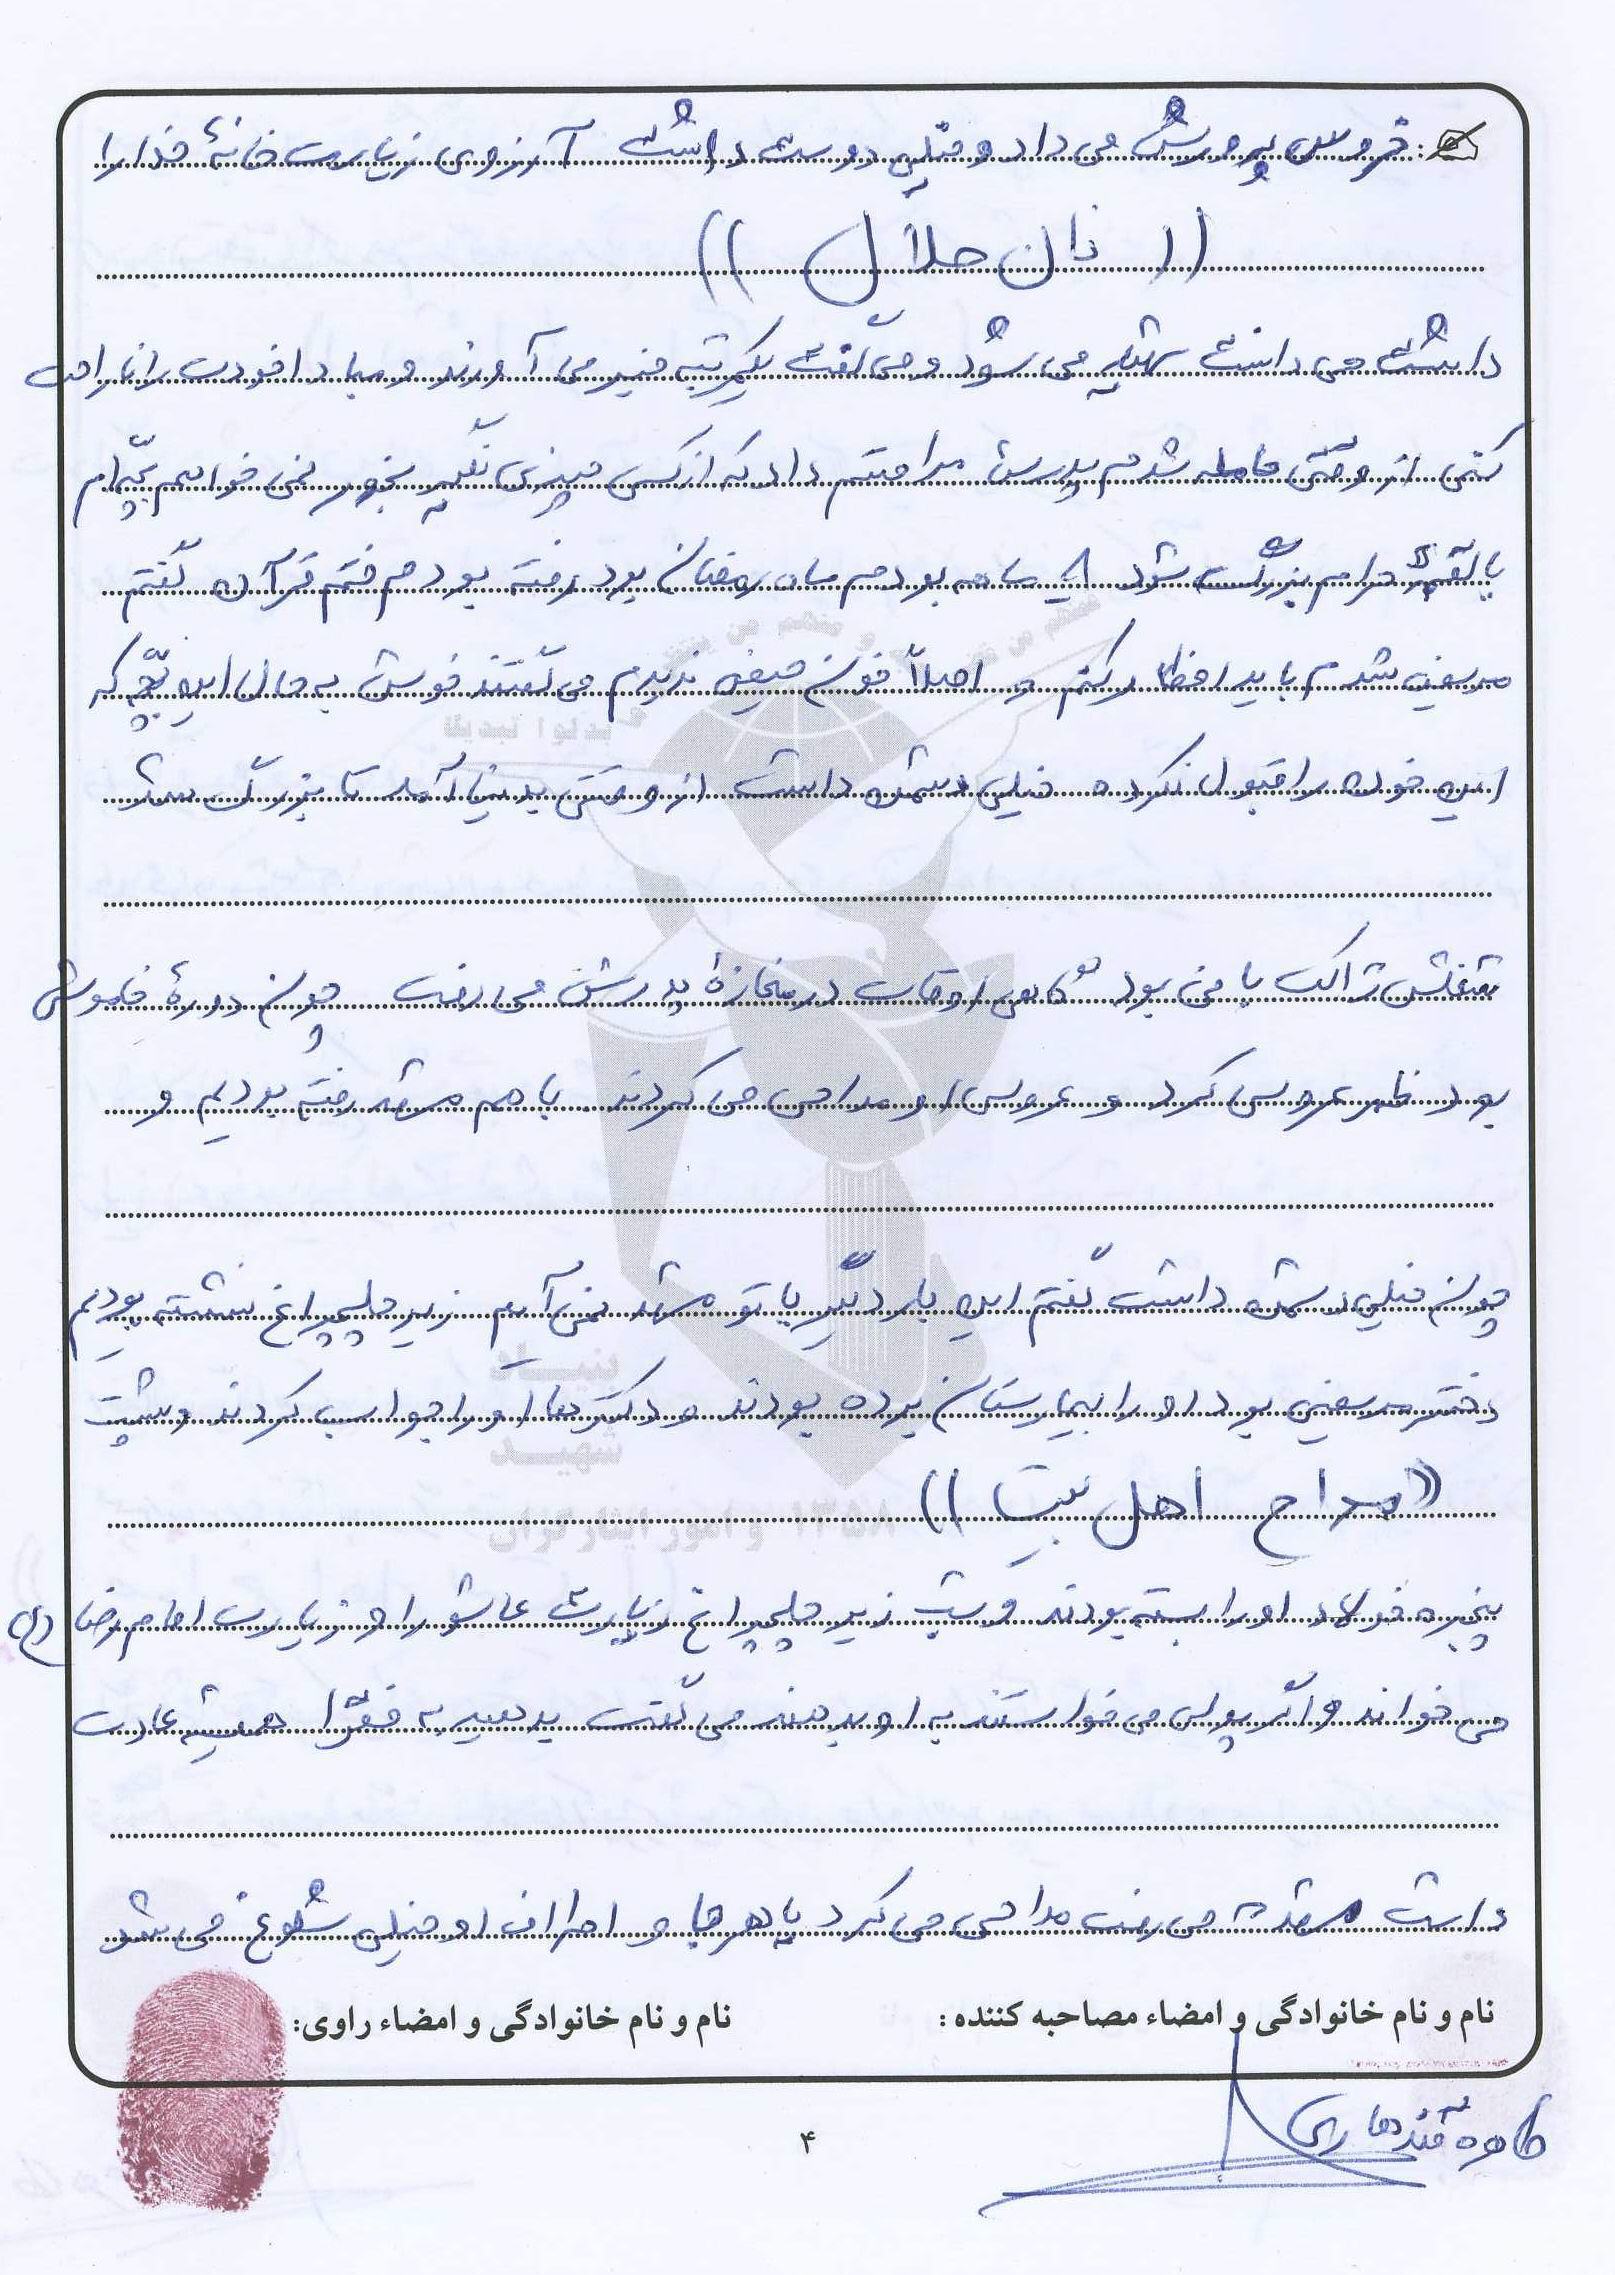 خروس پرورش می داد و خیلی دوست داشت آرزوی زیارت خانهٔ خدا را
(( نان حلال ))
داشت می دانست شهید می شود و می گفت یکمرتبه خبر می آورند و مبادا خودت را ناراحت
کنی از وقتی حامله شدم پدرش مرا قسم داد که از کسی چیزی نگیر بخور نمی خواهم بچّه ام
با لقمهٔ حرام بزرگ شود ۸ ماهه بودم ماه رمضان بود رفته بودم ختم قرآن گفتم
مریض شدم باید افطار کنم و اصلاً خون حیض ندیدم می گفتند خوش به حال این بچّه که
این خون را قبول نکرده خیلی دشمن داشت از وقتی بدنیا آمد تا بزرگ شد
تفنگش ژاکت با من بود گاهی اوقات در مغازهٔ پدرش می رفت چون دورهٔ خاموشی
بود ظهر عروسی کرد و عروسی او مداحی می کردند با هم مشهد رفته بودیم و
چون خیلی دشمن داشت گفتم این بار دیگر با تو مشهد نمی آیم زیر چلچراغ نشسته بودیم
دختر مریضی بود او را بیمارستان برده بودند و دکترها او را جواب کردند و پشت
(( مداح اهل بیت ))
پنجره فولاد او را بسته بودند و شب زیر چلچراغ زیارت عاشورا و زیارت امام رضا (ع)
می خواند و اگر پولی می خواستند به او بدهند می گفت بدهید به فقرا همیشه عادت
داشت مشهد می رفت مداحی می کرد یا هر جا و اطراف او خیلی شلوغ می شد
نام و نام خانوادگی و امضاء مصاحبه کننده :
نام و نام خانوادگی و امضاء راوی:
طاهره قندهاری
۴
بنیاد
شهید
و امور ایثارگران
۱۳۵۸